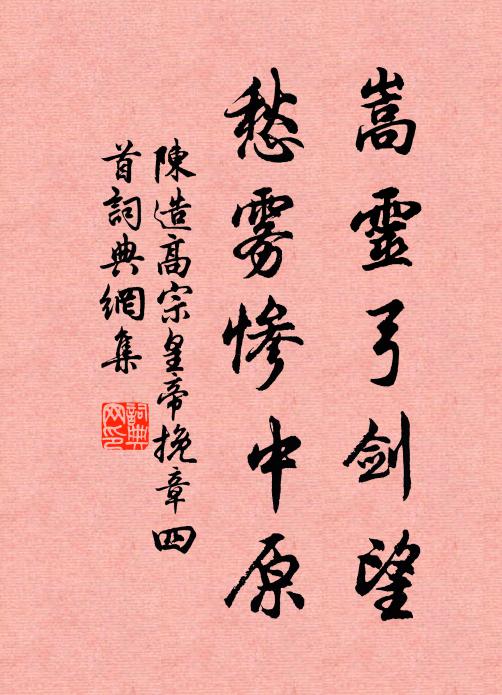 嵩靈弓剑望
愁雾慘中原
陳造高宗皇帝挽章四
首詞典網集
詞典
网印